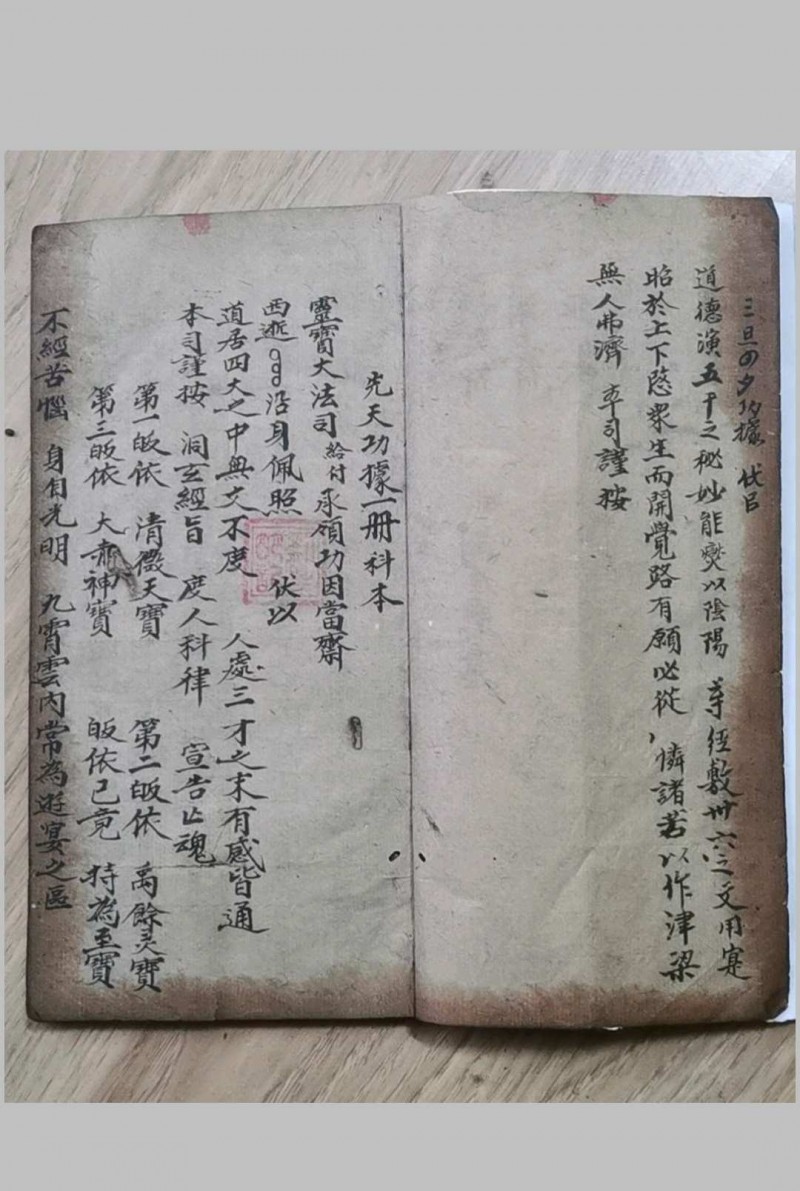 三旦四夕功據 伏㠯
道德演五千之秘妙能爕以陰陽 尊經敷卅六之文用寔
昭於上下愍衆生而開覺路有願必從憐諸苦以作津梁
無人弗濟 本司謹按
先天功據一册科本
靈寶大法司 給付 承領功因當齋
西逝 沿身佩照 伏以
道居四大之中無文不度 人處三才之末有感皆通
本司謹按 洞玄經旨 度人科律 宣告亾魂
第一皈依 清微天寶 第二皈依 禹餘灵寶
第三皈依 大赤神寶 皈依已竟 持為至寶
不經苦惱 身有光明 九霄雲内常為遊宴之區